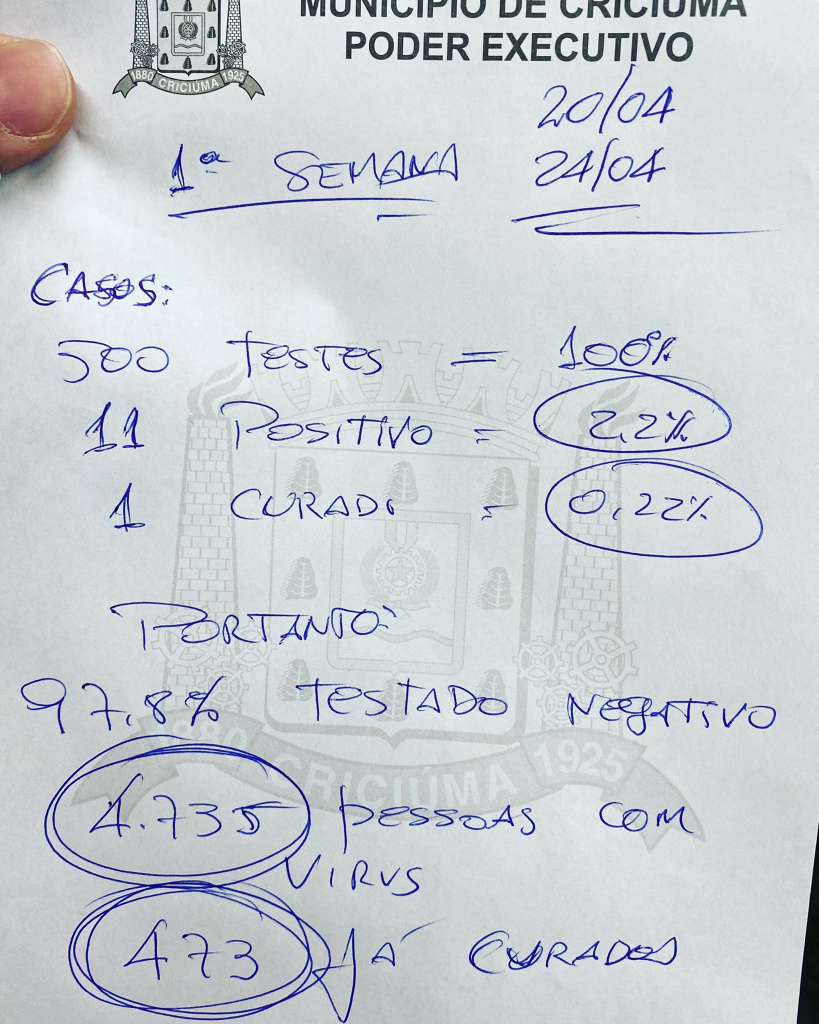 MUNICÍPIO DE CRICIÚMA
PODER EXECUTIVO
1880 CRICIÚMA 1925
20/04
1ª SEMANA 24/04
CASOS:
500 TESTES = 100%
11 POSITIVO = 2,2%
1 CURADO = 0,22%
PORTANTO:
97,8% TESTADO NEGATIVO
1880 CRICIÚMA 1925
4.735 PESSOAS COM
VIRUS
473 JÁ CURADOS